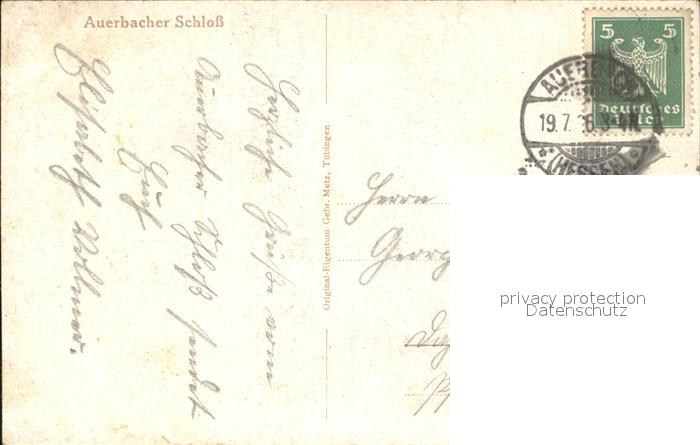 Auerbacher Schloß
Herzliche Grüße vom
Auerbacher Schloß sendet
Euch
Elisabeth Vollmer.
Original-Eigentum Gebr. Metz, Tübingen
5 5
Deutsches
Reich
AUERBACH
19.7.26.3-4N.
(HESSEN)
Herrn
Georg
privacy protection
Datenschutz